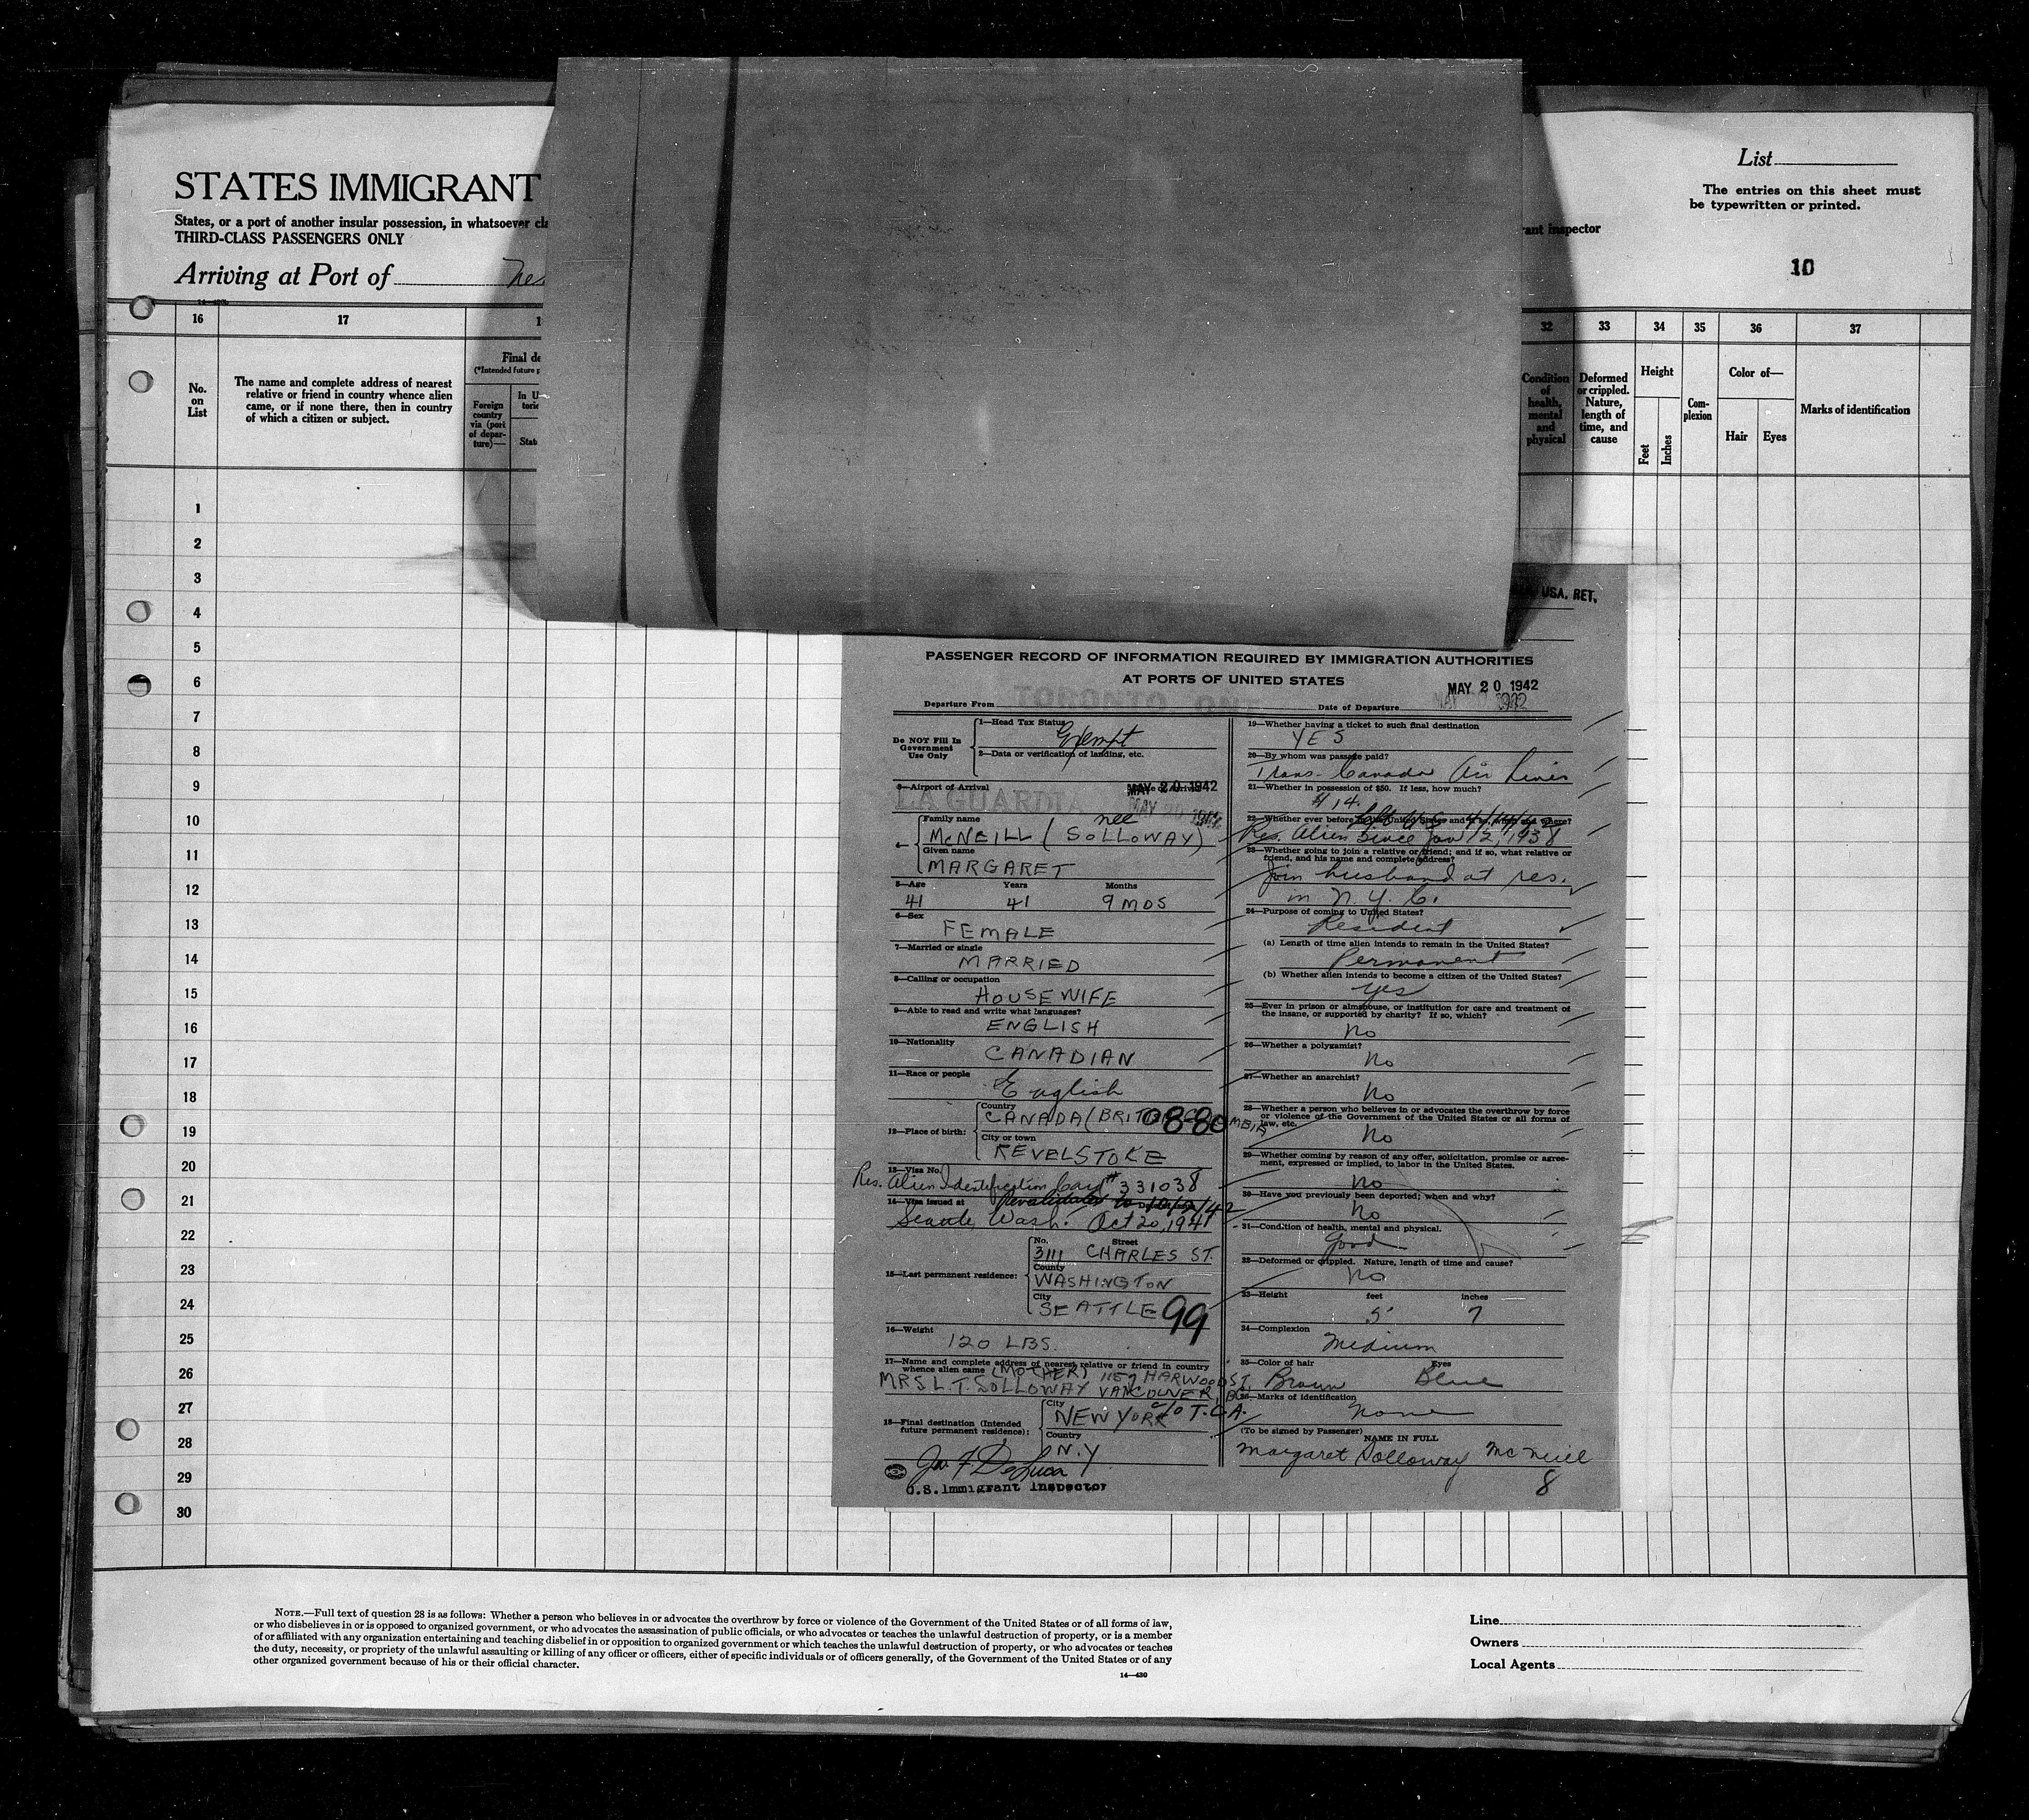 STATES IMMIGRANT
List
States, or a port of another insular possession, in whatsoever
The entries on this sheet must
be typewritten or printed.
THIRD-CLASS PASSENGERS ONLY
inspector
Arriving at Port of
10
16 17 32 33 34 35 36 37
No. on List
The name and complete address of nearest
relative or friend in country whence alien
came, or if none there, then in country
of which a citizen or subject.
Final
(*Intended future
Foreign country via (port of departure)—
In U
Condition of health, mental and physical
Deformed or crippled. Nature, length of time, and cause
Height
Feet
Inches
Com-
plexion
Color of—
Hair Eyes
Marks of identification
1
2
3
4
5
6
7
8
9
10
11
12
13
14
15
16
17
18
19
20
21
22
23
24
25
26
27
28
29
30
USA. RET.
PASSENGER RECORD OF INFORMATION REQUIRED BY IMMIGRATION AUTHORITIES
AT PORTS OF UNITED STATES
MAY 20 1942
Departure From TORONTO, ONT. Date of Departure
Do NOT Fill In
Government
Use Only
1—Head Tax Status
Exempt
2—Data or verification of landing, etc.
3—Airport of Arrival
MAY 20 1942
LA GUARDIA
4—
Family name
nee
McNEILL (SOLLOWAY)
Given name
MARGARET
5—Age Years Months
41 41 9 MOS
6—Sex
FEMALE
7—Married or single
MARRIED
8—Calling or occupation
HOUSEWIFE
9—Able to read and write what languages?
ENGLISH
10—Nationality
CANADIAN
11—Race or people
English
12—Place of birth:
Country
CANADA (BRITISH COLUMBIA
0880
City or town
REVELSTOKE
13—Visa No.
Res. Alien Identification Card # 331038
14—Visa issued at
Revalidated to 10/12/42
Seattle Wash. Oct 20, 1941
15—Last permanent residence:
No. Street
3111 CHARLES ST.
County
WASHINGTON
City
SEATTLE 99
16—Weight
120 LBS.
17—Name and complete address of nearest relative or friend in country
whence alien came (MOTHER) 1157 HARWOOD ST.
MRS L. T. SOLLOWAY VANCOUVER, BC.
18—Final destination (Intended
future permanent residence):
City
NEW YORK c/o T.C.A.
Country
N.Y
Jos. F. DeLuca
U.S. Immigrant Inspector
19—Whether having a ticket to such final destination
YES
20—By whom was passage paid?
Trans-Canada Air Lines
21—Whether in possession of $50. If less, how much?
$14.
22—Whether ever before in United States and if so, when and where?
Res. Alien Since Jan 12, 1938
23—Whether going to join a relative or friend; and if so, what relative or
friend, and his name and complete address?
Join husband at res.
in N.Y.C.
24—Purpose of coming to United States?
Resident
(a) Length of time alien intends to remain in the United States?
Permanent
(b) Whether alien intends to become a citizen of the United States?
Yes
25—Ever in prison or almshouse, or institution for care and treatment of
the insane, or supported by charity? If so, which?
No
26—Whether a polygamist?
No
27—Whether an anarchist?
No
28—Whether a person who believes in or advocates the overthrow by force
or violence of the Government of the United States or all forms of
law, etc.
No
29—Whether coming by reason of any offer, solicitation, promise or agree-
ment, expressed or implied, to labor in the United States.
No
30—Have you previously been deported; when and why?
No
31—Condition of health, mental and physical.
Good
32—Deformed or crippled. Nature, length of time and cause?
No
33—Height feet inches
5' 7
34—Complexion
Medium
35—Color of hair Eyes
Brown Blue
36—Marks of identification
None
(To be signed by Passenger)
NAME IN FULL
Margaret Solloway McNeill
8
NOTE.—Full text of question 28 is as follows: Whether a person who believes in or advocates the overthrow by force or violence of the Government of the United States or of all forms of law,
or who disbelieves in or is opposed to organized government, or who advocates the assassination of public officials, or who advocates or teaches the unlawful destruction of property, or is a member
of or affiliated with any organization entertaining and teaching disbelief in or opposition to organized government or which teaches the unlawful destruction of property, or who advocates or teaches
the duty, necessity, or propriety of the unlawful assaulting or killing of any officer or officers, either of specific individuals or of officers generally, of the Government of the United States or of any
other organized government because of his or their official character.
14—430
Line
Owners
Local Agents